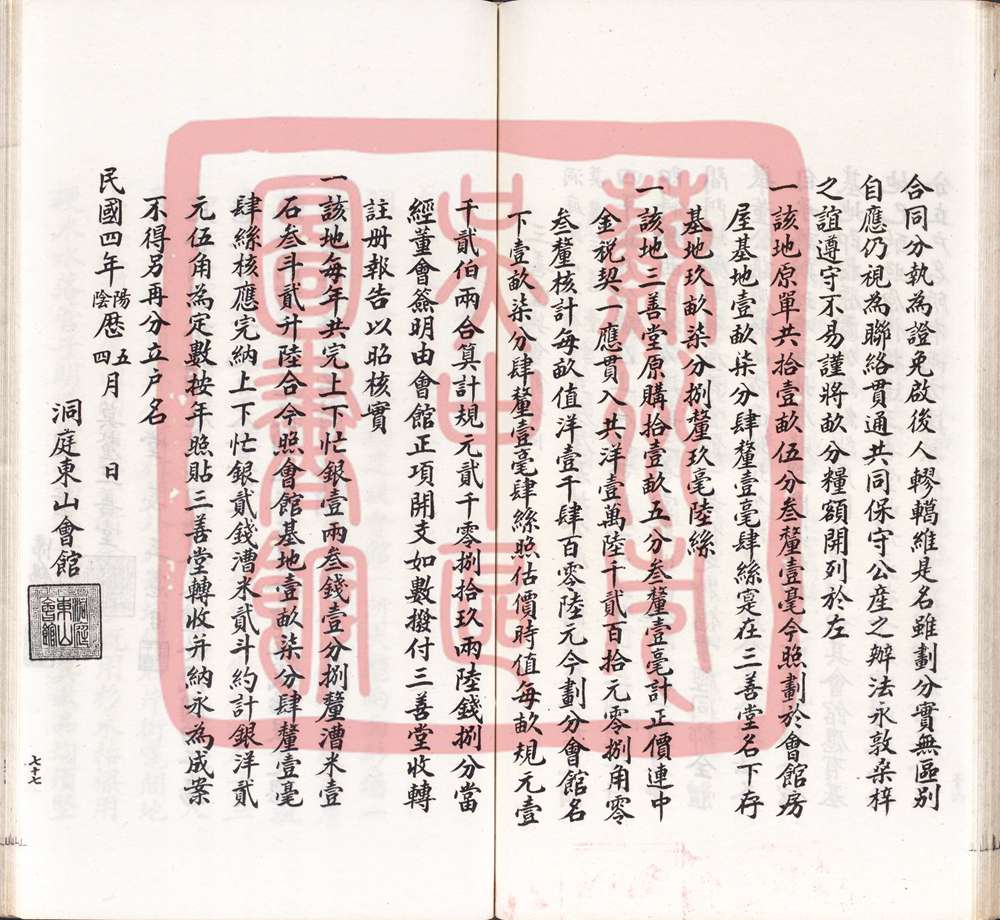 合同分執為證免啟後人轇轕維是名雖劃分實無區別
自應仍視為聯絡貫通共同保守公產之辦法永敦桑梓
之誼遵守不易謹將畝分糧額開列於左
一該地原單共拾壹畝伍分叁釐壹毫今照劃於會館房
屋基地壹畝柒分肆釐壹毫肆絲寔在三善堂名下存
基地玖畝柒分捌釐玖毫陸絲
一該地三善堂原購拾壹畝五分叁釐壹毫計正價連中
金稅契一應貫入共洋壹萬陸千貳百拾元零捌角零
叁釐核計每畝值洋壹千肆百零陸元今劃分會館名
下壹畝柒分肆釐壹毫肆絲照估價時值每畝規元壹
千貳伯兩合算計規元貳千零捌拾玖兩陸錢捌分當
經董會簽明由會館正項開支如數撥付三善堂收轉
註冊報告以昭核實
一該地每年共完上下忙銀壹兩叁錢壹分捌釐漕米壹
石叁斗貳升陸合今照會館基地壹畝柒分肆釐壹毫
肆絲核應完納上下忙銀貳錢漕米貳斗約計銀洋貳
元伍角為定數按年照貼三善堂轉收并納永為成案
不得另再分立戶名
民國四年陽陰歷五四月 日
洞庭東山會館
洞庭東山會館
七十七
蘇州市
吳中區
圖書館